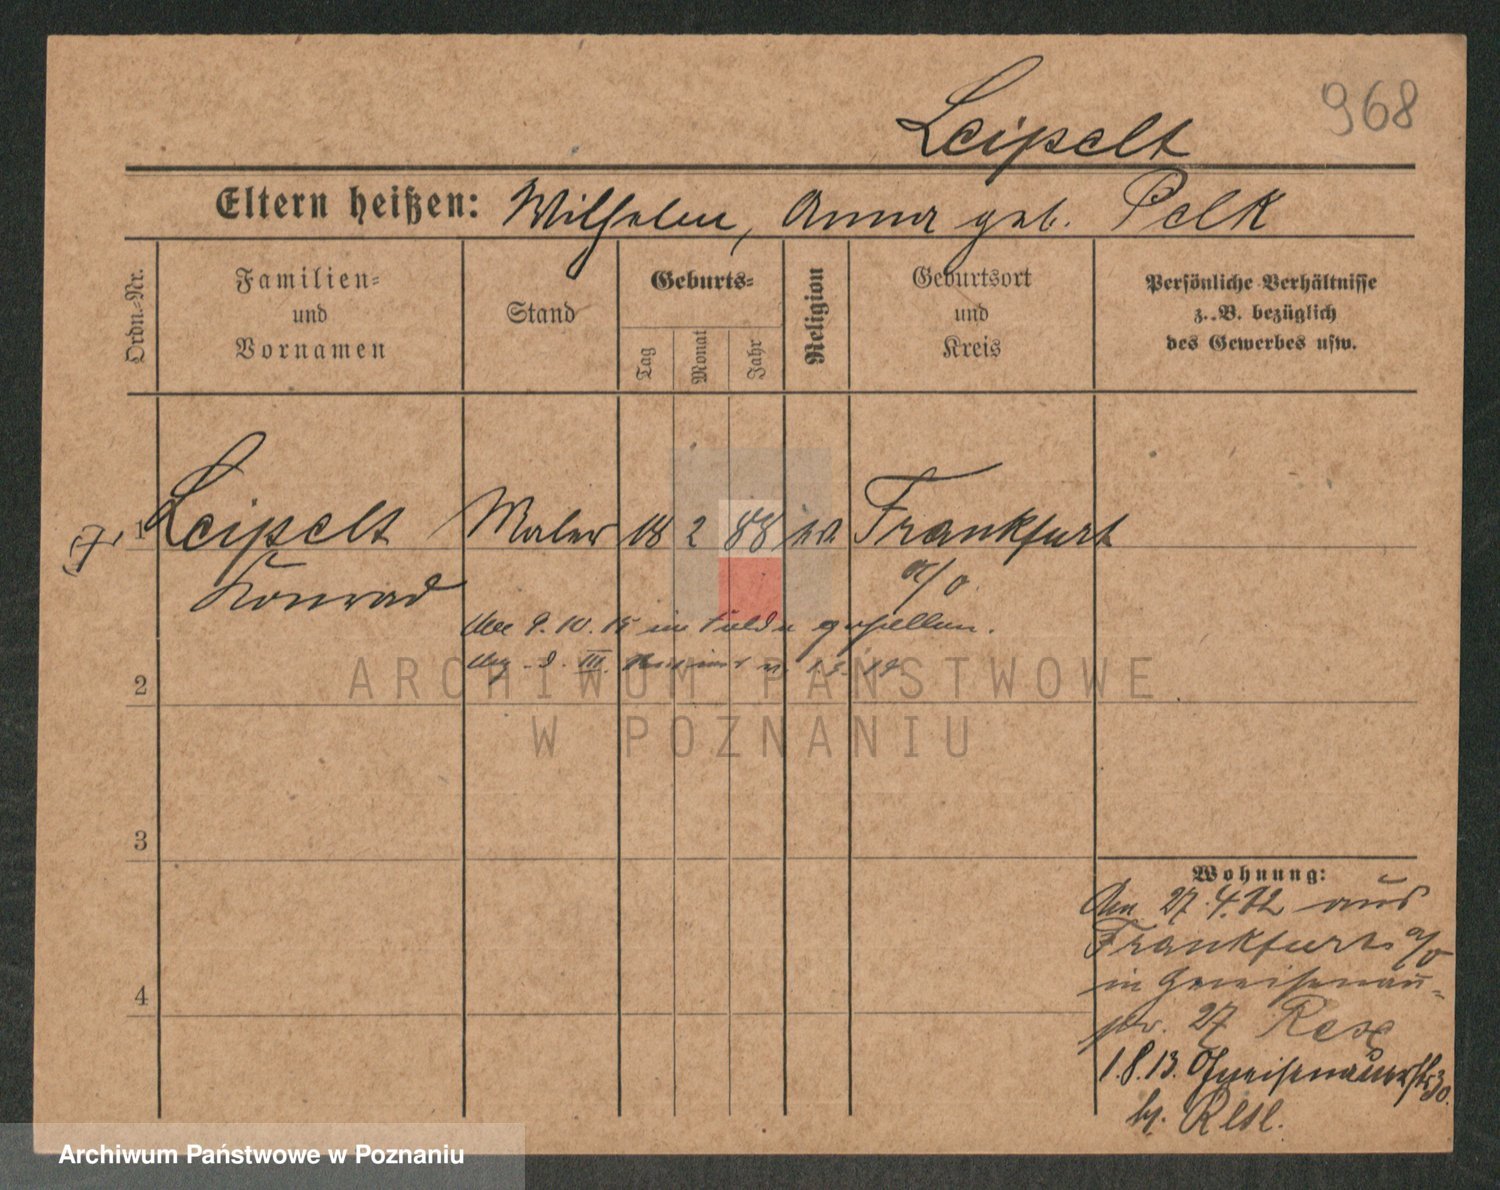 968
Leipelt
Eltern heißen: Wilhelm, Anna geb. Pelk
Ordn.-Nr.
Familien-
und
Vornamen
Stand
Geburts-
Tag
Monat
Jahr
Religion
Geburtsort
und
Kreis
Persönliche Verhältnisse
z. B. bezüglich
des Gewerbes usw.
1 Leipelt Maler 18 2 88 Frankfurt
Konrad a/O.
9.10.15 im Felde gefallen.
III.
2
ARCHIWUM PAŃSTWOWE
W POZNANIU
3
4
Wohnung:
27.4.12 aus
Frankfurt a/O
in Gneisenau-
str. 27
1.8.13. Gneisenaustr 30.
Archiwum Państwowe w Poznaniu